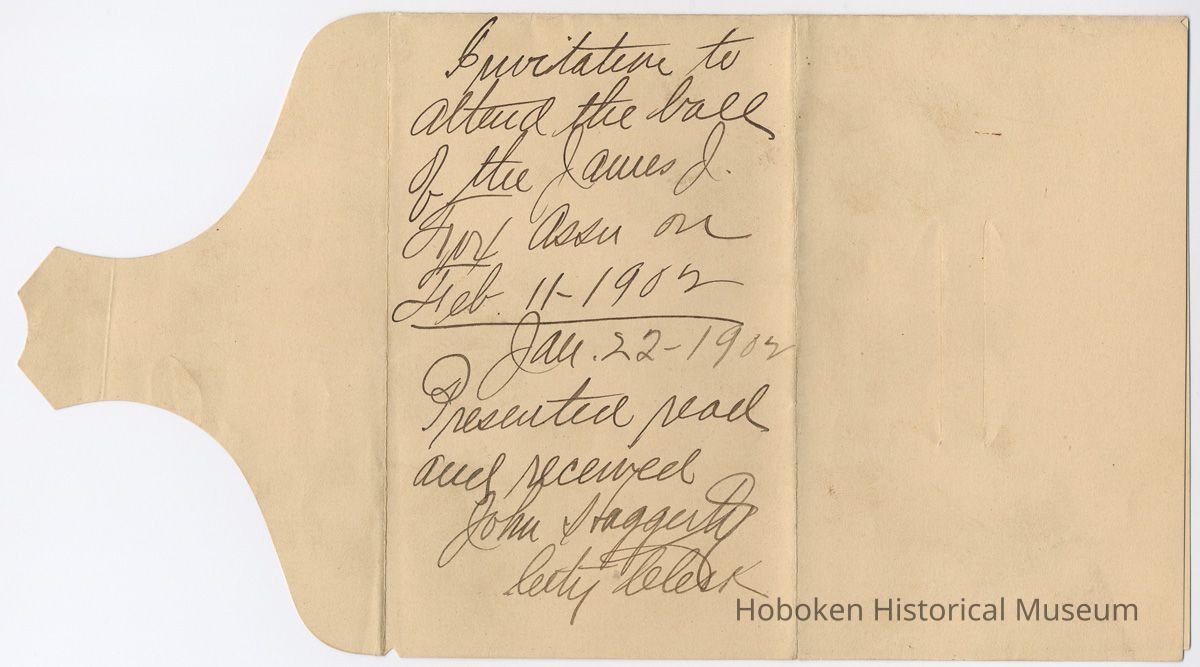 Invitation to
attend the ball
of the James J.
Fox Assn on
Feb. 11-1902
Jan. 22-1902
Presented read
and received
John Haggerty
City Clerk
Hoboken Historical Museum